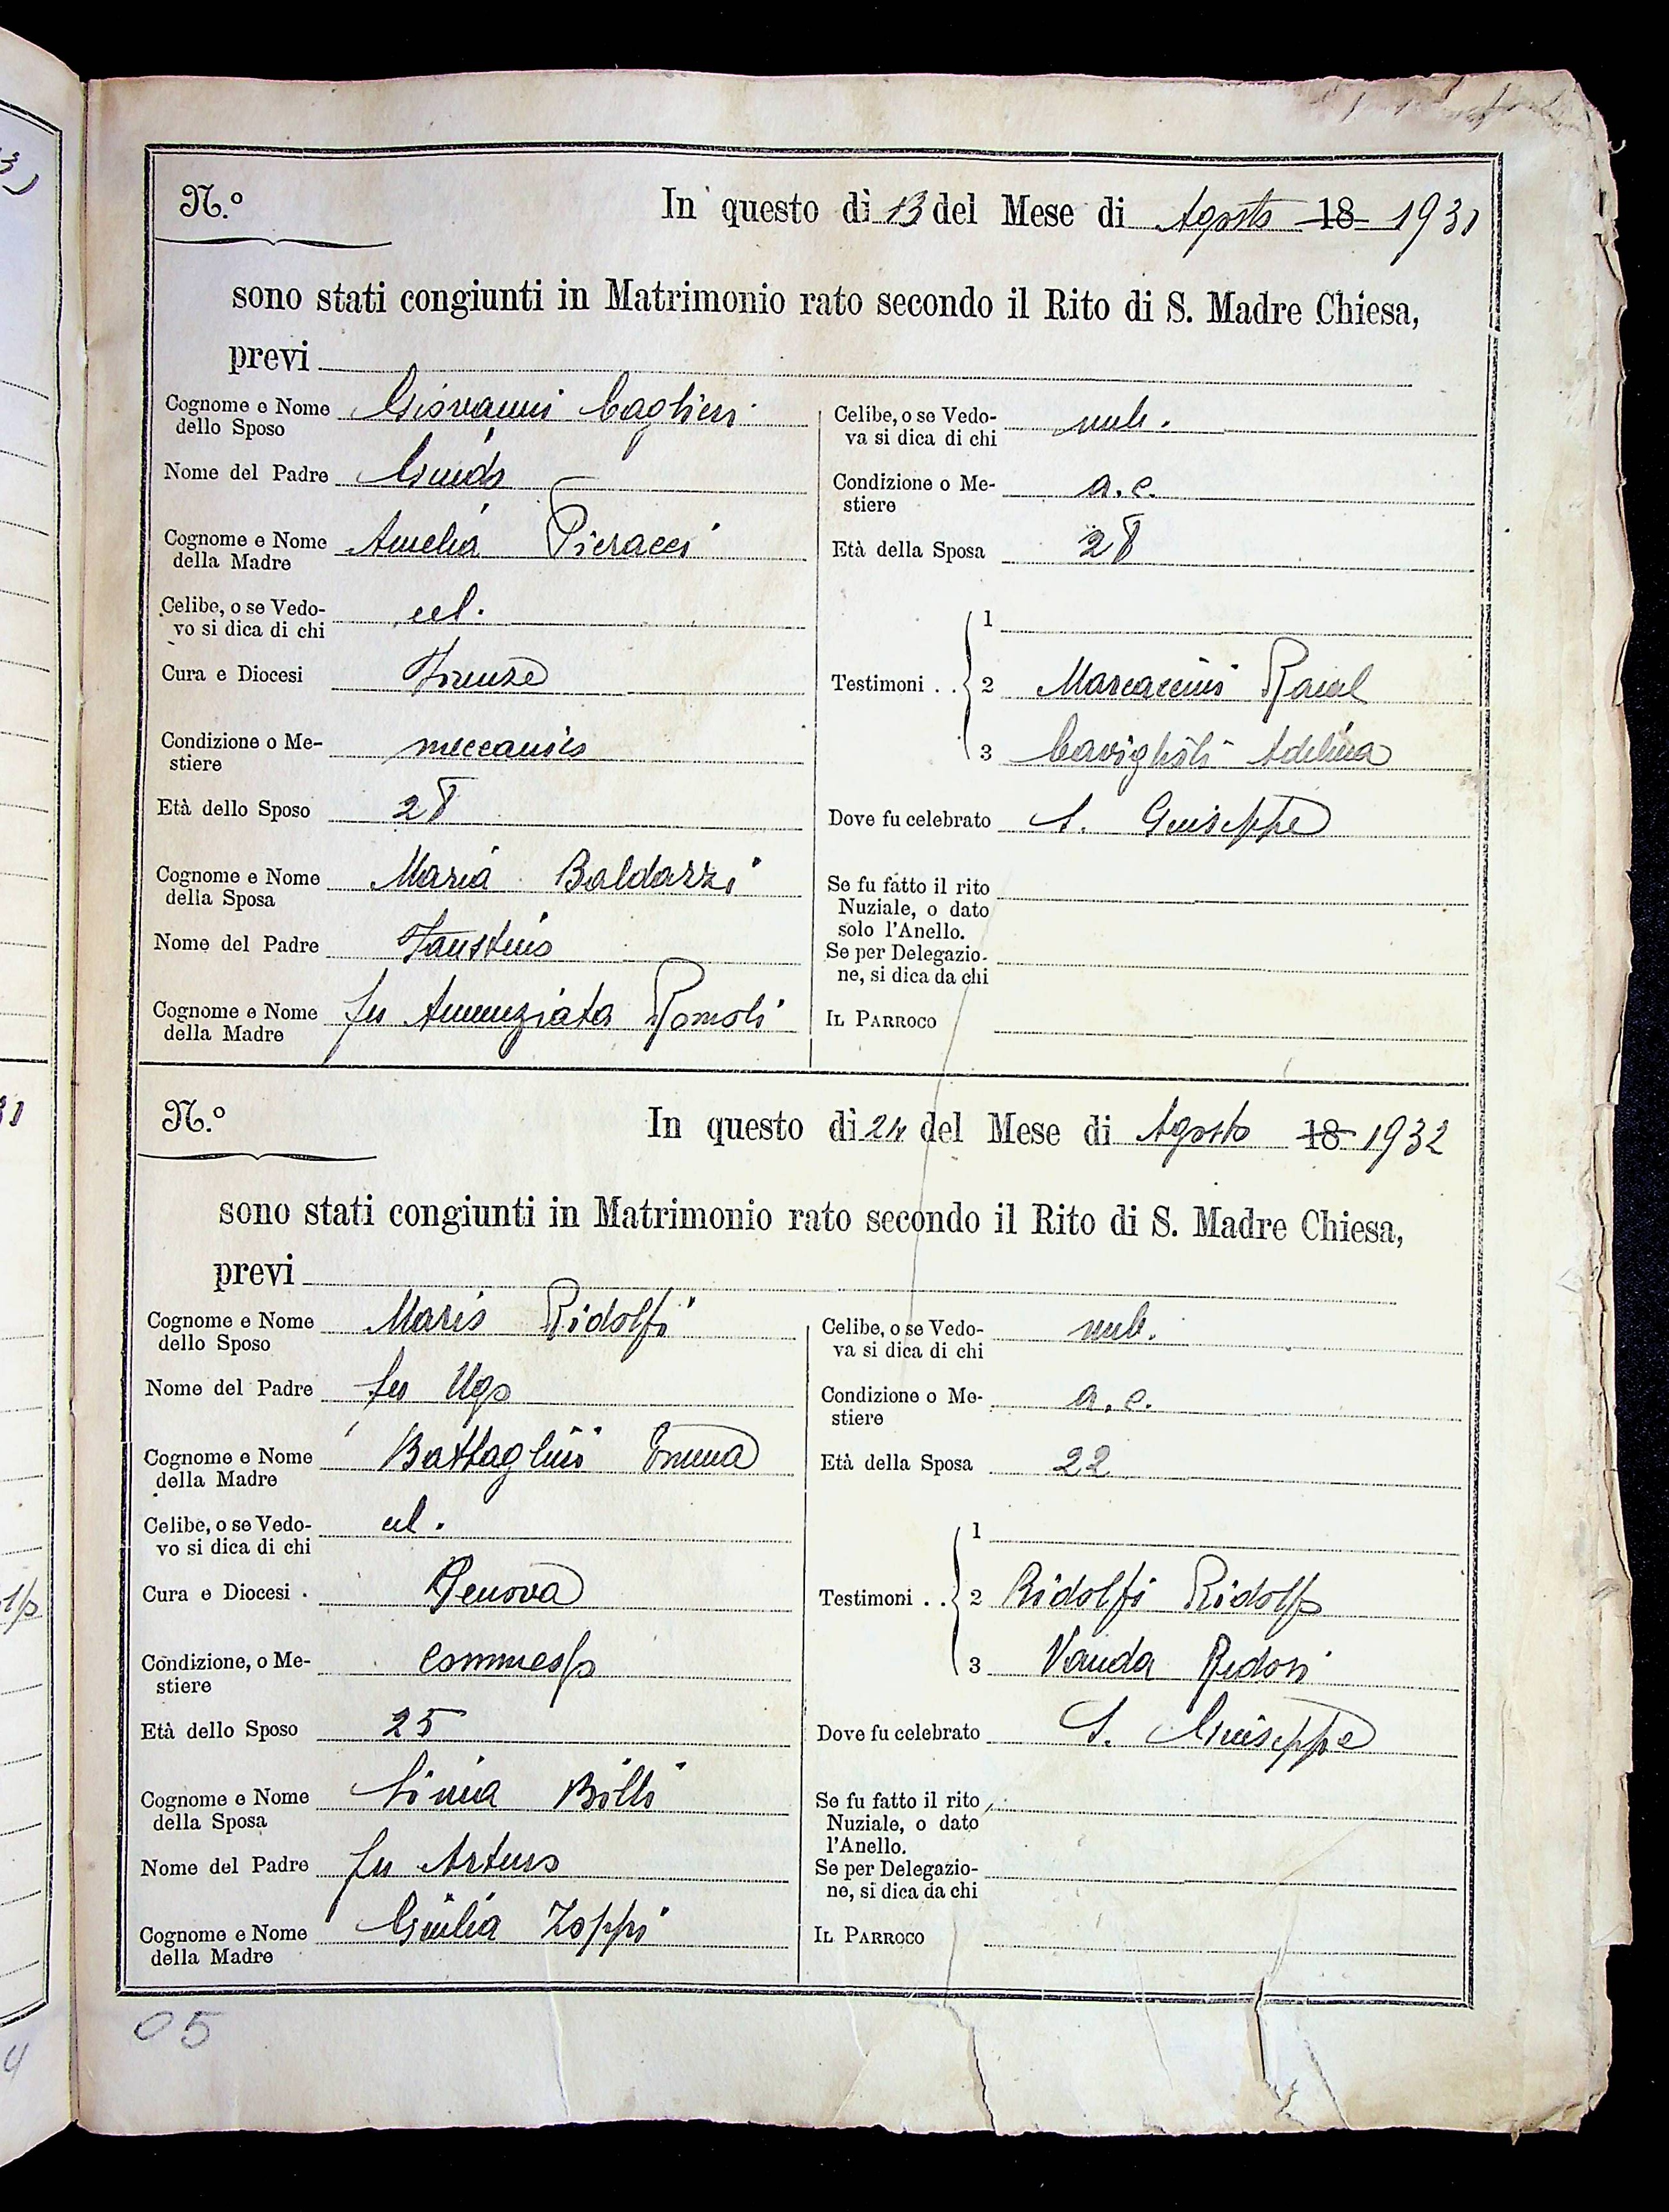 N.º In questo dì 13 del Mese di Agosto 18 1931
sono stati congiunti in Matrimonio rato secondo il Rito di S. Madre Chiesa,
previ
Cognome e Nome dello Sposo Giovanni Caglieri
Nome del Padre Guido
Cognome e Nome della Madre Amelia Pieracci
Celibe, o se Vedovo si dica di chi cel.
Cura e Diocesi Firenze
Condizione o Mestiere meccanico
Età dello Sposo 28
Cognome e Nome della Sposa Maria Baldazzi
Nome del Padre Faustino
Cognome e Nome della Madre fu Annunziata Romoli
Celibe, o se Vedova si dica di chi nub.
Condizione o Mestiere a. c.
Età della Sposa 28
Testimoni . . 1
2 Marcaccini Raul
3 Caviglioli Adelina
Dove fu celebrato S. Giuseppe
Se fu fatto il rito Nuziale, o dato solo l'Anello.
Se per Delegazione, si dica da chi
IL PARROCO
N.º In questo dì 24 del Mese di Agosto 18 1932
sono stati congiunti in Matrimonio rato secondo il Rito di S. Madre Chiesa,
previ
Cognome e Nome dello Sposo Mario Ridolfi
Nome del Padre fu Ugo
Cognome e Nome della Madre Battaglini Emma
Celibe, o se Vedovo si dica di chi cel.
Cura e Diocesi . Genova
Condizione, o Mestiere commesso
Età dello Sposo 25
Cognome e Nome della Sposa Billi
Nome del Padre fu Arturo
Cognome e Nome della Madre Giulia Zoppi
Celibe, o se Vedova si dica di chi nub.
Condizione o Mestiere a. c.
Età della Sposa 22
Testimoni . . 1
2 Ridolfi Ridolfo
3 Vanda
Dove fu celebrato S. Giuseppe
Se fu fatto il rito Nuziale, o dato l'Anello.
Se per Delegazione, si dica da chi
IL PARROCO
05